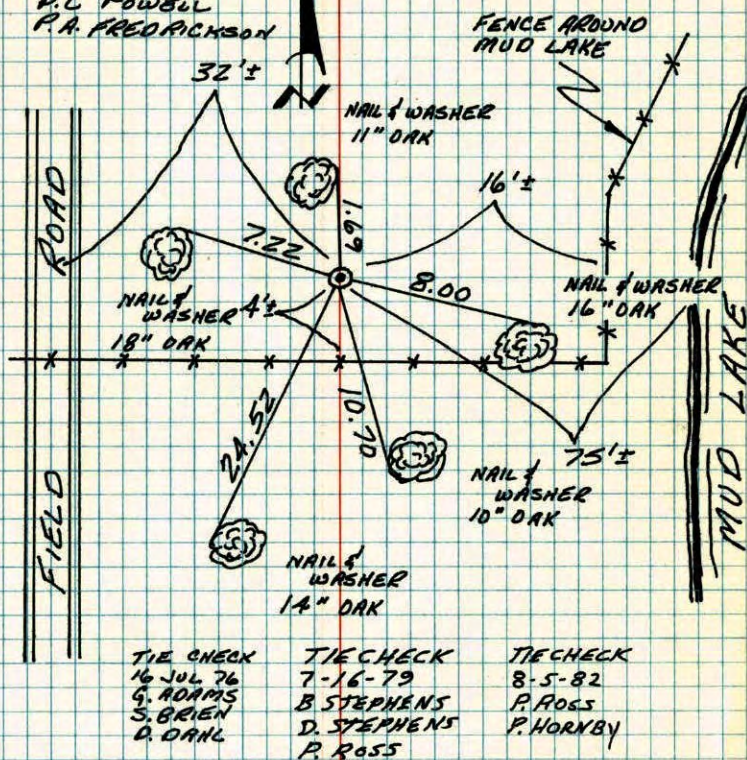 P.L POWELL
P.A. FREDRICKSON
FENCE AROUND
MUD LAKE
32'±
N
NAIL & WASHER
11" OAK
16'±
1.69
7.22
8.00
NAIL & WASHER
16" OAK
NAIL &
WASHER
18" OAK
4'±
24.52
10.70
75'±
NAIL &
WASHER
10" OAK
NAIL &
WASHER
14" OAK
FIELD ROAD
MUD LAKE
TIE CHECK
16 JUL 76
G. ADAMS
S. BRIEN
D. DAHL
TIE CHECK
7-16-79
B STEPHENS
D. STEPHENS
P. ROSS
TIE CHECK
8-5-82
P. ROSS
P. HORNBY